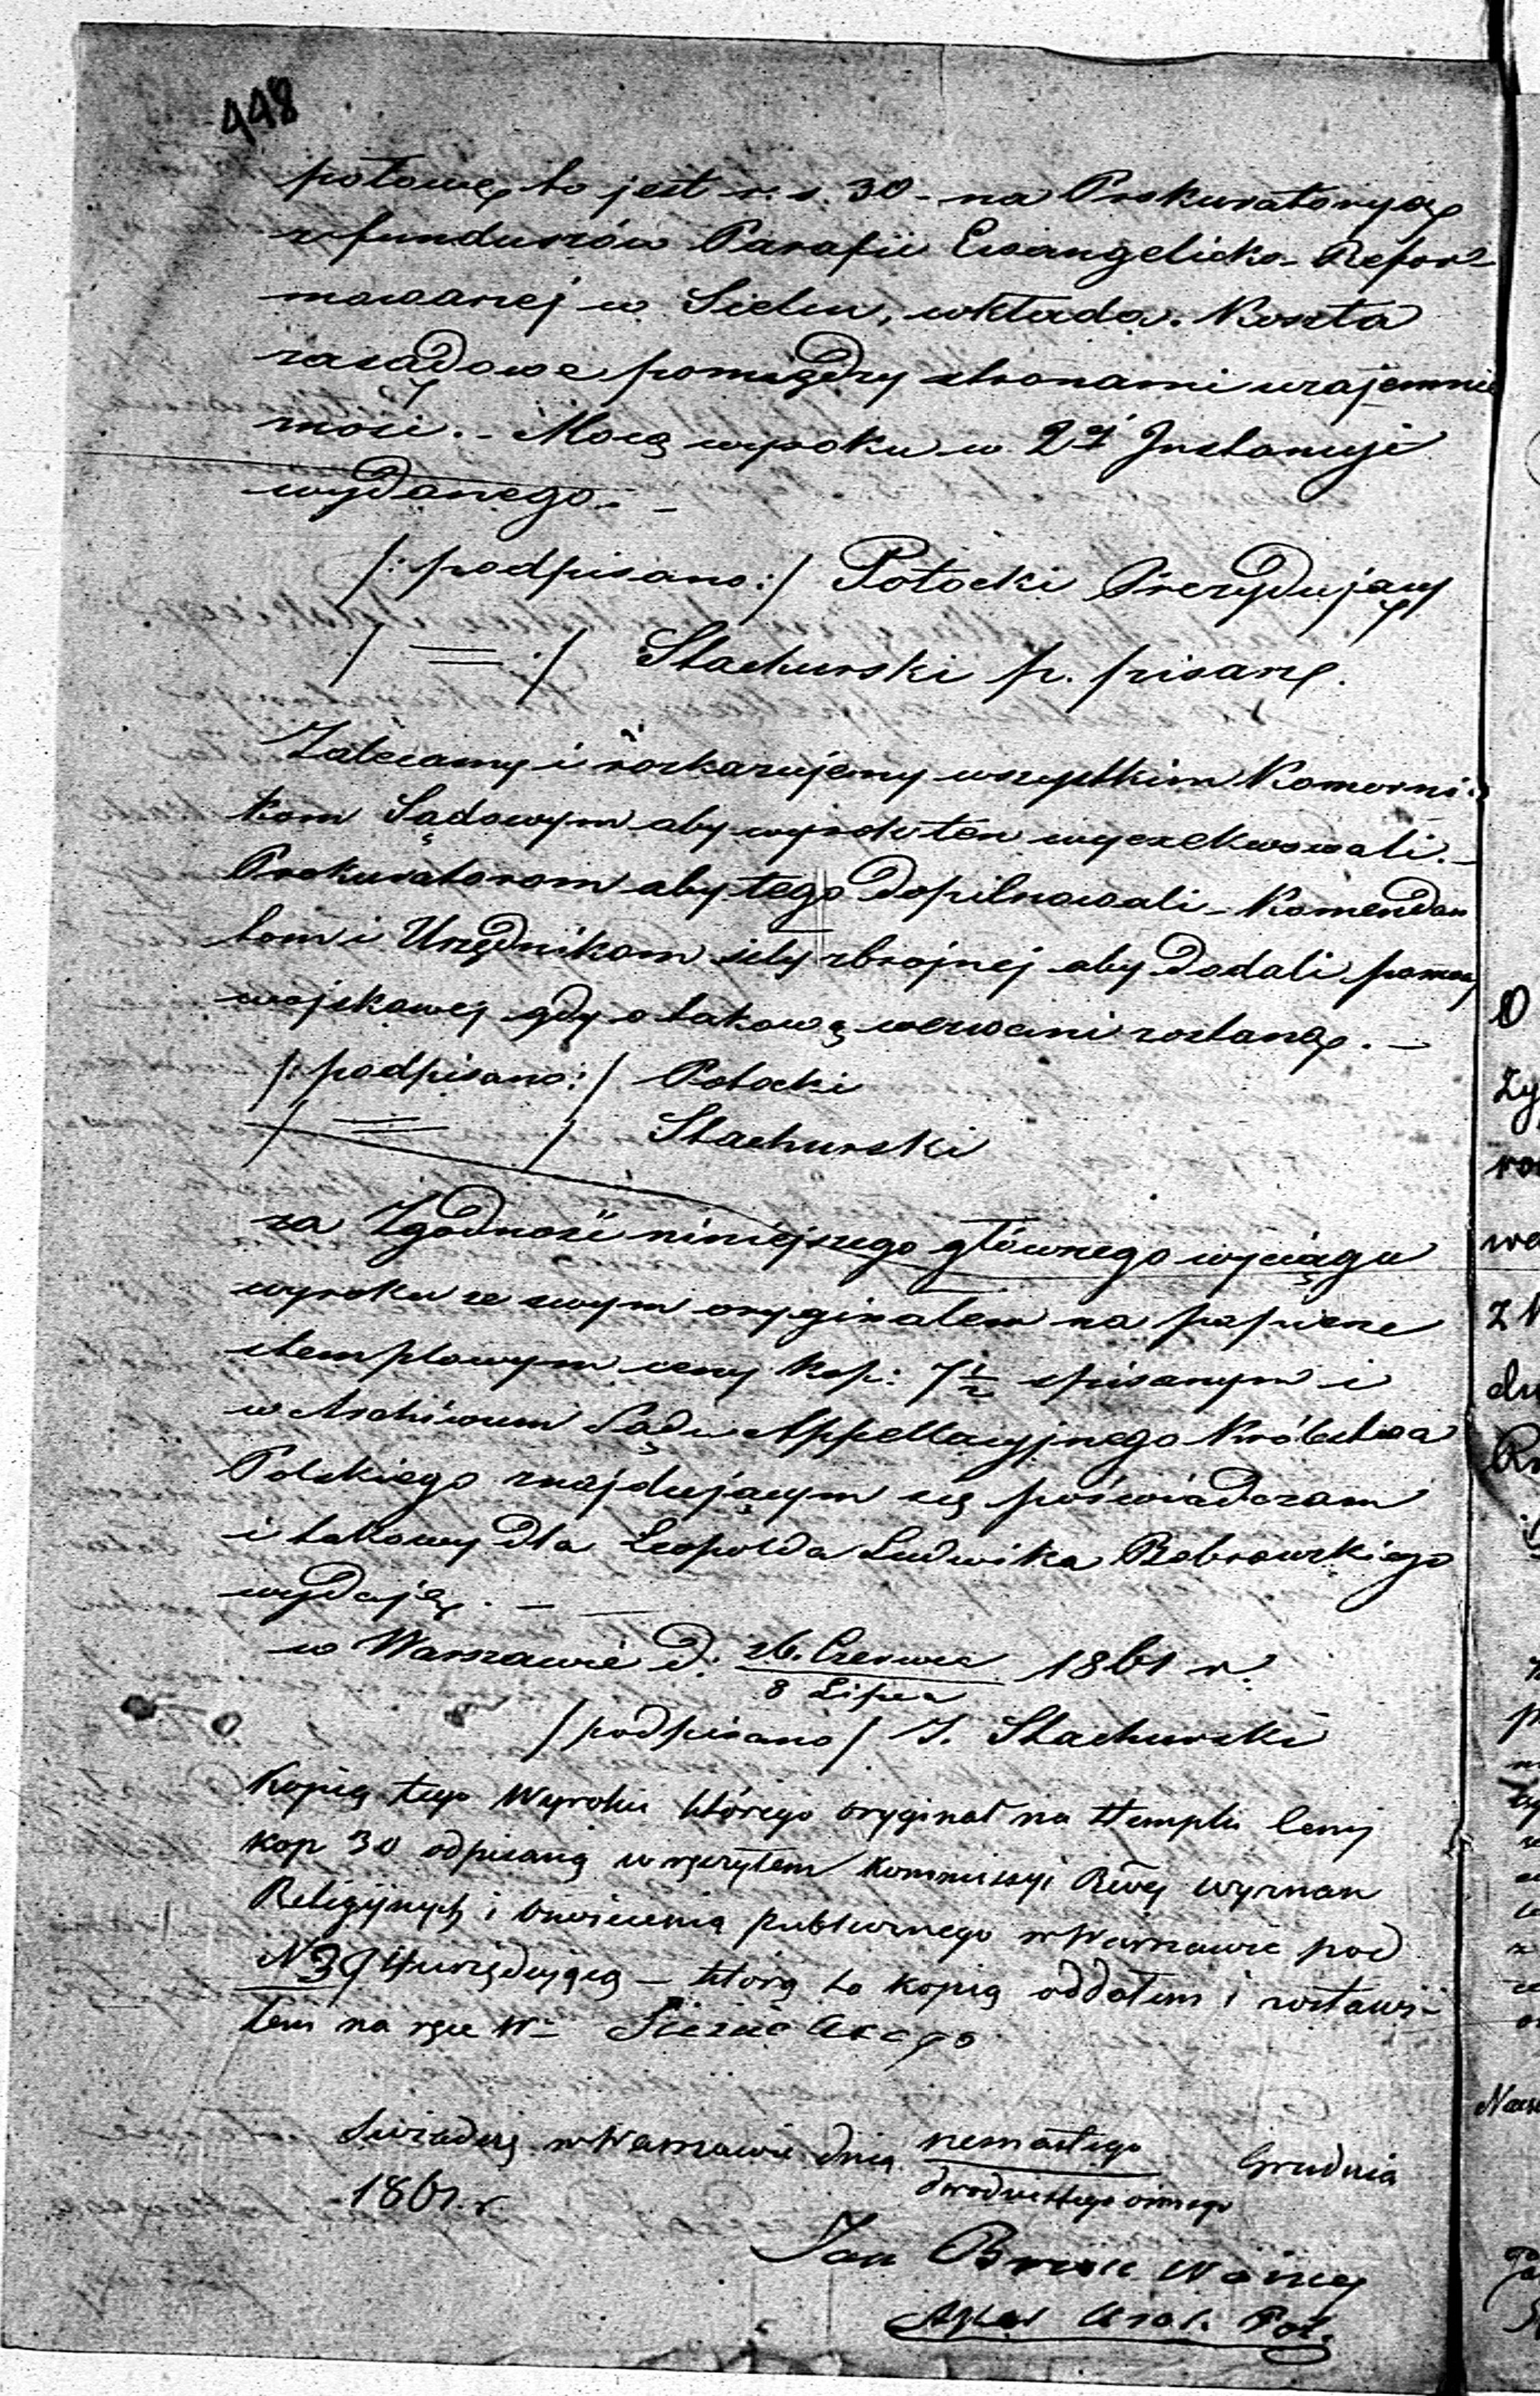 448
połowę to jest r. s. 30 - na Prokuratoryą
z funduszów Parafii Ewangelicko - Refor-
mowanej w Sielcu, wkłada. Koszta
zasądowe pomiędzy stronami wzajemnie
znosi. - Mocą wyroku w 2ej Instancyi
wydanego. -
/: podpisano :/ Potocki Prezydujący
/ = :/ Stachurski p. pisarz.
Zalecamy i rozkazujemy wszystkim Komorni-
kom Sądowym aby wyrok ten wyexekwowali. -
Prokuratorom aby tego dopilnowali - Komendan
tom i Urzędnikom siły zbrojnej aby dodali pomocy
wojskowej gdy o takową wezwani zostaną. -
/: podpisano :/ Potocki
/ = / Stachurski
za Zgodność niniejszego głównego wyciągu
wyroku ze swym oryginałem na papierze
stemplowym ceny kop: 7½ spisanym i
w Archiwum Sądu Appellacyjnego Królestwa
Polskiego znajdującym się poświadczam
i takowy dla Leopolda Ludwika Bobrowskiego
wydaję. -
w Warszawie d. 26. Czerwca / 8 Lipca 1861 r.
/podpisano/ J. Stachurski
Kopią tego Wyroku którego oryginał na stemplu ceny
kop 30 odpisaną wręczyłem Kommissyi Rówej wyznan
Religijnych i Oświecenia publicznego w Warszawie pod
N 39 urzędującą - którą to kopią oddałem i zostawi-
łem na ręce Wo
Świadczę w Warszawie dnia szesnastego / dwudziestego ósmego Grudnia
1861. r
Jan Woźny
Apel Pol.